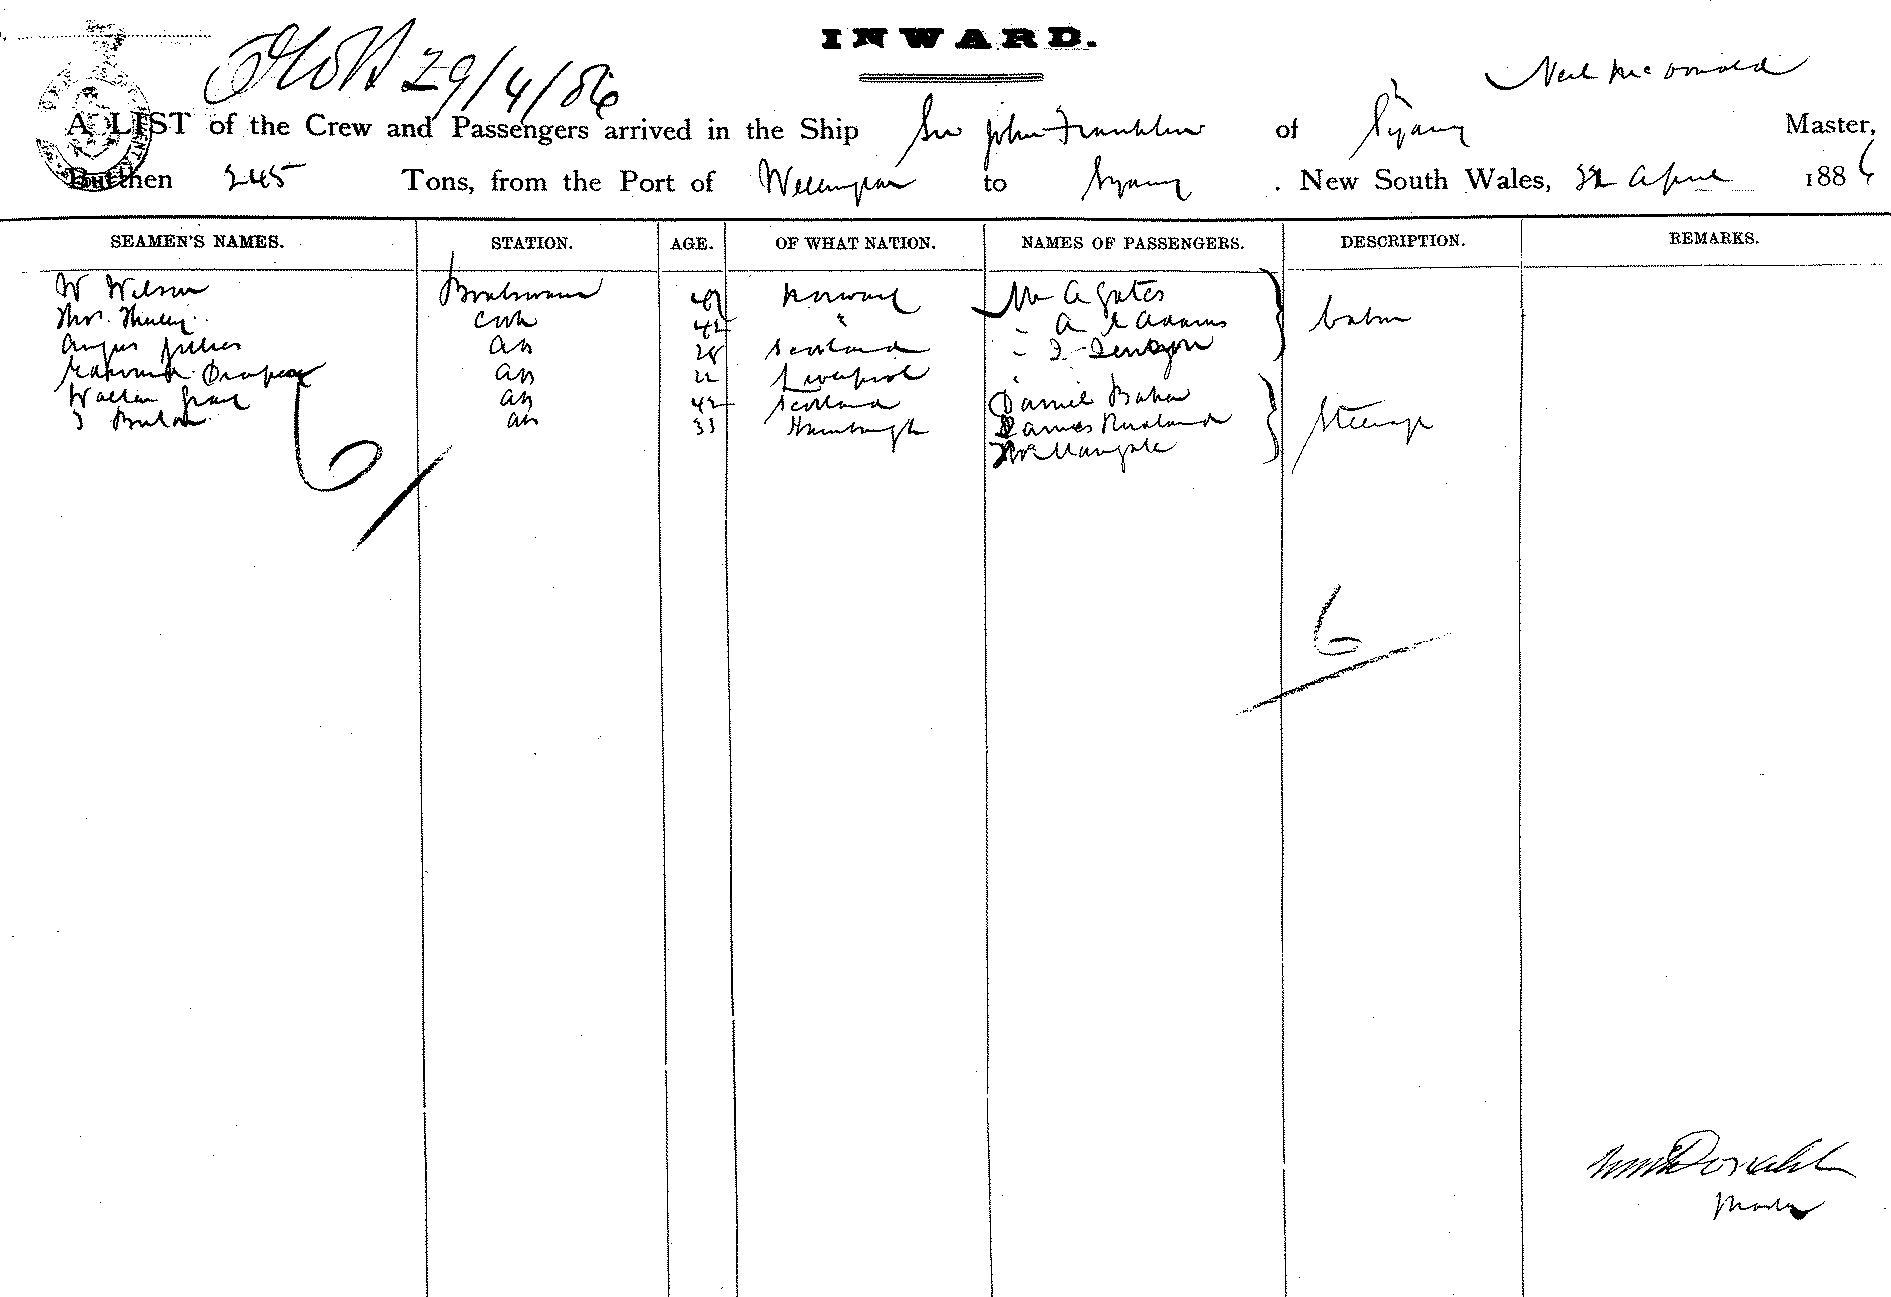 INWARD.
29/4/86
Neil McDonald
A LIST of the Crew and Passengers arrived in the Ship Sir John Franklin of Sydney Master,
Burthen 245 Tons, from the Port of Wellington to Sydney . New South Wales, April 1886
SEAMEN'S NAMES. STATION. AGE. OF WHAT NATION. NAMES OF PASSENGERS. DESCRIPTION. REMARKS.
W Wilson Boatswain Norway Mr A Gates
Thos. Cook 42 " " A E Adams Cabin
Angus Gillies AB 28 Scotland "
Draper AB 22 Liverpool
Walter Gray AB 42 Scotland Daniel Baker
AB 33 Hamburgh James Steerage
6
6
McDonald
Master